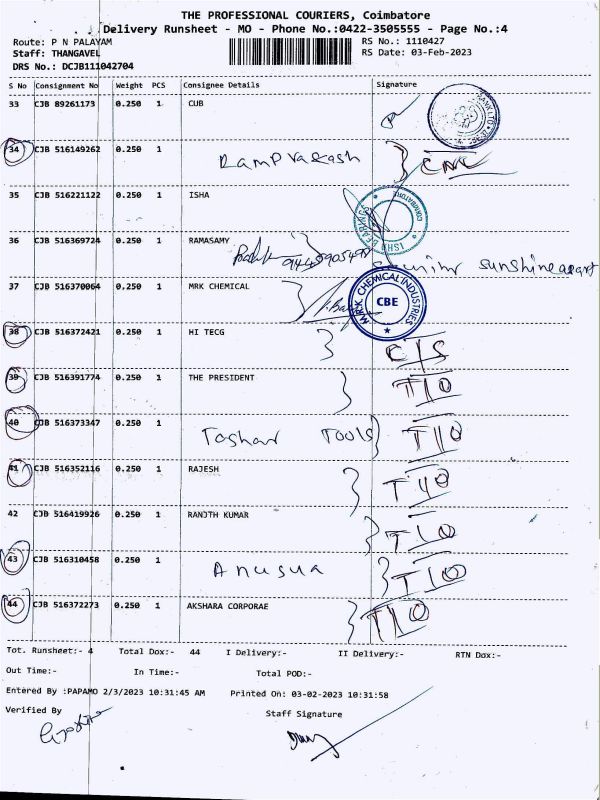 THE PROFESSIONAL COURIERS, Coimbatore
Delivery Runsheet - MO - Phone No.:0422-3505555 - Page No.:4
Route: P N PALAYAM RS No.: 1110427
Staff: THANGAVEL RS Date: 03-Feb-2023
DRS No.: DCJB111042704
S No Consignment No Weight PCS Consignee Details Signature
33 CJB 89261173 0.250 1 CUB
34 CJB 516149262 0.250 1 Ramprakash
35 CJB 516221122 0.250 1 ISHA
36 CJB 516369724 0.250 1 RAMASAMY
sunshine
37 CJB 516370064 0.250 1 MRK CHEMICAL MRK CHEMICAL INDUSTRIES CBE
38 CJB 516372421 0.250 1 HI TECG C/S
39 CJB 516391774 0.250 1 THE PRESIDENT T/O
40 CJB 516373347 0.250 1 Toshar Tools T/O
41 CJB 516352116 0.250 1 RAJESH T/O
42 CJB 516419926 0.250 1 RANJTH KUMAR T/O
43 CJB 516310458 0.250 1 Anusua T/O
44 CJB 516372273 0.250 1 AKSHARA CORPORAE T/O
Tot. Runsheet:- 4 Total Dox:- 44 I Delivery:- II Delivery:- RTN Dox:-
Out Time:- In Time:- Total POD:-
Entered By :PAPAMO 2/3/2023 10:31:45 AM Printed On: 03-02-2023 10:31:58
Verified By Staff Signature